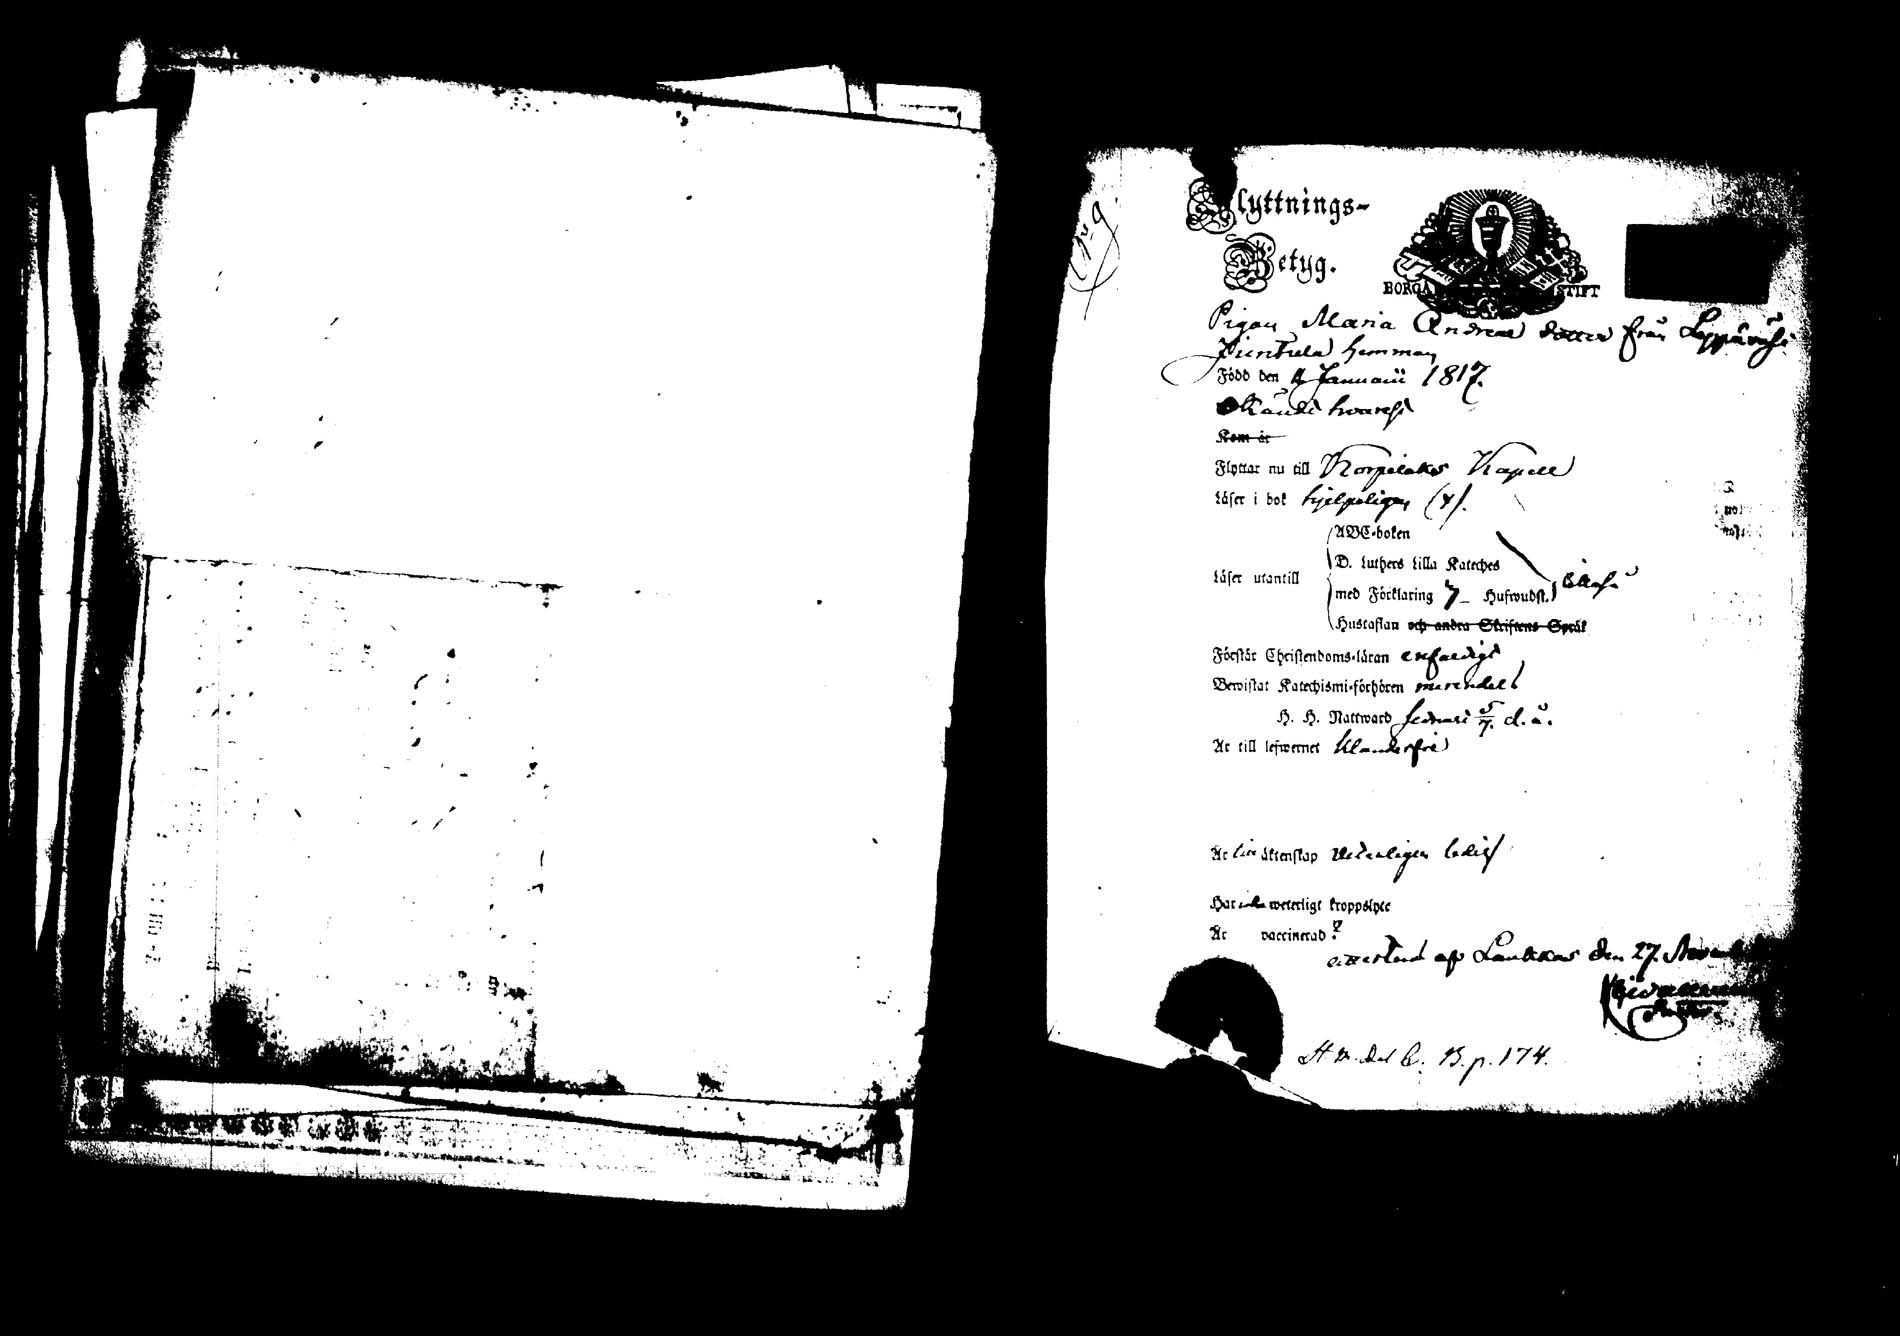 Flyttnings-
Betyg.
BORGÅ STIFT
Pigan Maria Andreae dotter från Leppävesi
hemman
Född den 4 Januarii 1817.
Kom år
Flyttar nu till Korpilaks Kapell
Läser i bok hjelpeligen (x).
ABC-boken
D. Luthers Lilla Kateches
Läser utantill
med Förklaring 7 Hufwudst.
Hustaflan och andra Skriftens Språk
Förstår Christendoms-läran enfaldigt
Bewistat Katechismi-förhören merendels
H. H. Nattward sednast 5/7. d. å.
Är till lefwernet klanderfri
Är till äktenskap veterligen ledig
Har icke weterligt kroppslyte
Är vaccinerad?
attesterad af Laukkas den 27. Novemb
p. 174.